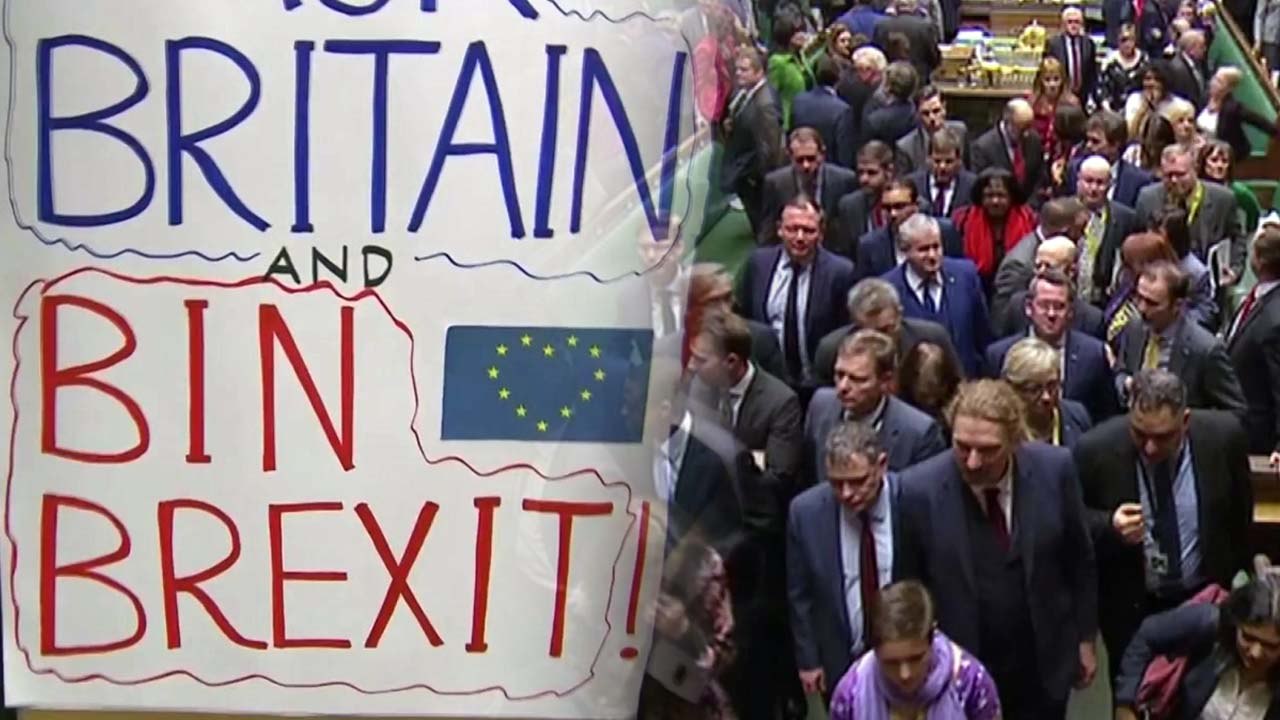 BRITAIN
AND
BIN
BREXIT!